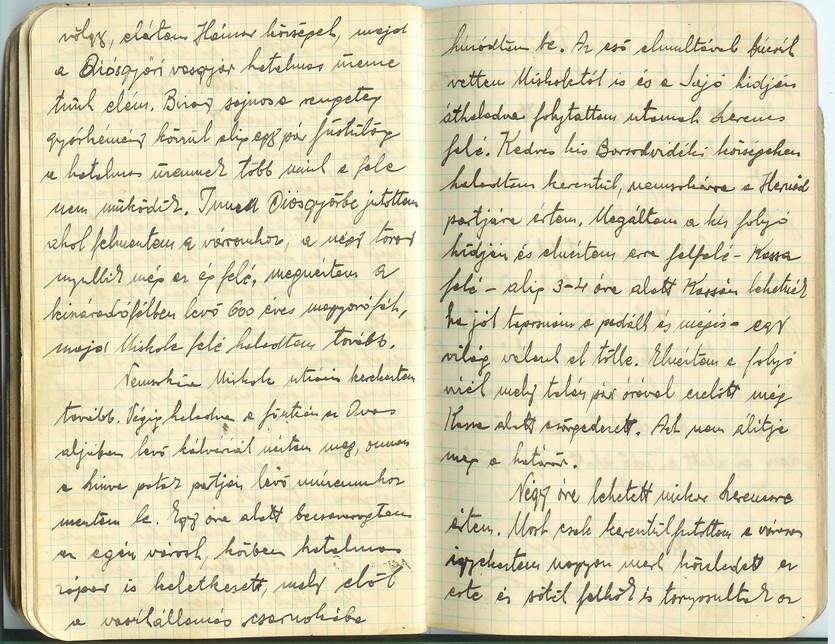 völgy, elértem Hámor községet, majd
a Diósgyőri vasgyár hatalmas üzeme
tünt elém. Bizony sajnos a rengeteg
gyárkémény körül alig egy pár füstölög
a hatalmas üzemnek több mint a fele
nem működik. Innen Diósgyőrbe jutottam
ahol felmentem a várromhoz, a négy torony
nyullik még az ég felé, megnéztem a
kiszáradófélben levő 600 éves mogyorófát,
majd Miskolc felé haladtam tovább.
Nemsokára Miskolc utcáin kerekeztem
tovább. Végig haladva a főutcán az Avas
aljában levő kálváriát néztem meg, onnan
a Szinva patak partján levő múzeumhoz
mentem be. Egy óra alatt becsavarogtam
az egész várost, közben hatalmas
zápor is keletkezett, mely elől
a vasútállomás csarnokába
húzódtam be. Az eső elmultával búcsút
vettem Miskolctól is és a Sajó hídján
áthaladva folytattam utamat Szerencs
felé. Kedves kis Borsodvidéki községeken
haladtam keresztül, nemsokára a Hernád
partjára értem. Megálltam a kis folyó
hídján és elnéztem arra felfelé - Kassa
felé - alig 3-4 óra alatt Kassán lehetnék
ha jól taposnám a pedált és mégis - egy
világ választ el tőlle. Elnéztem a folyó
vizét mely talán pár órával ezelőtt még
Kassa alatt csörgedezett. Azt nem állítja
meg a határ.
Négy óra lehetett mikor Szerencsre
értem. Most csak keresztül futottam a városon
igyekeztem nagyon mert közeledett az
este és sötét felhők is tornyosultak az